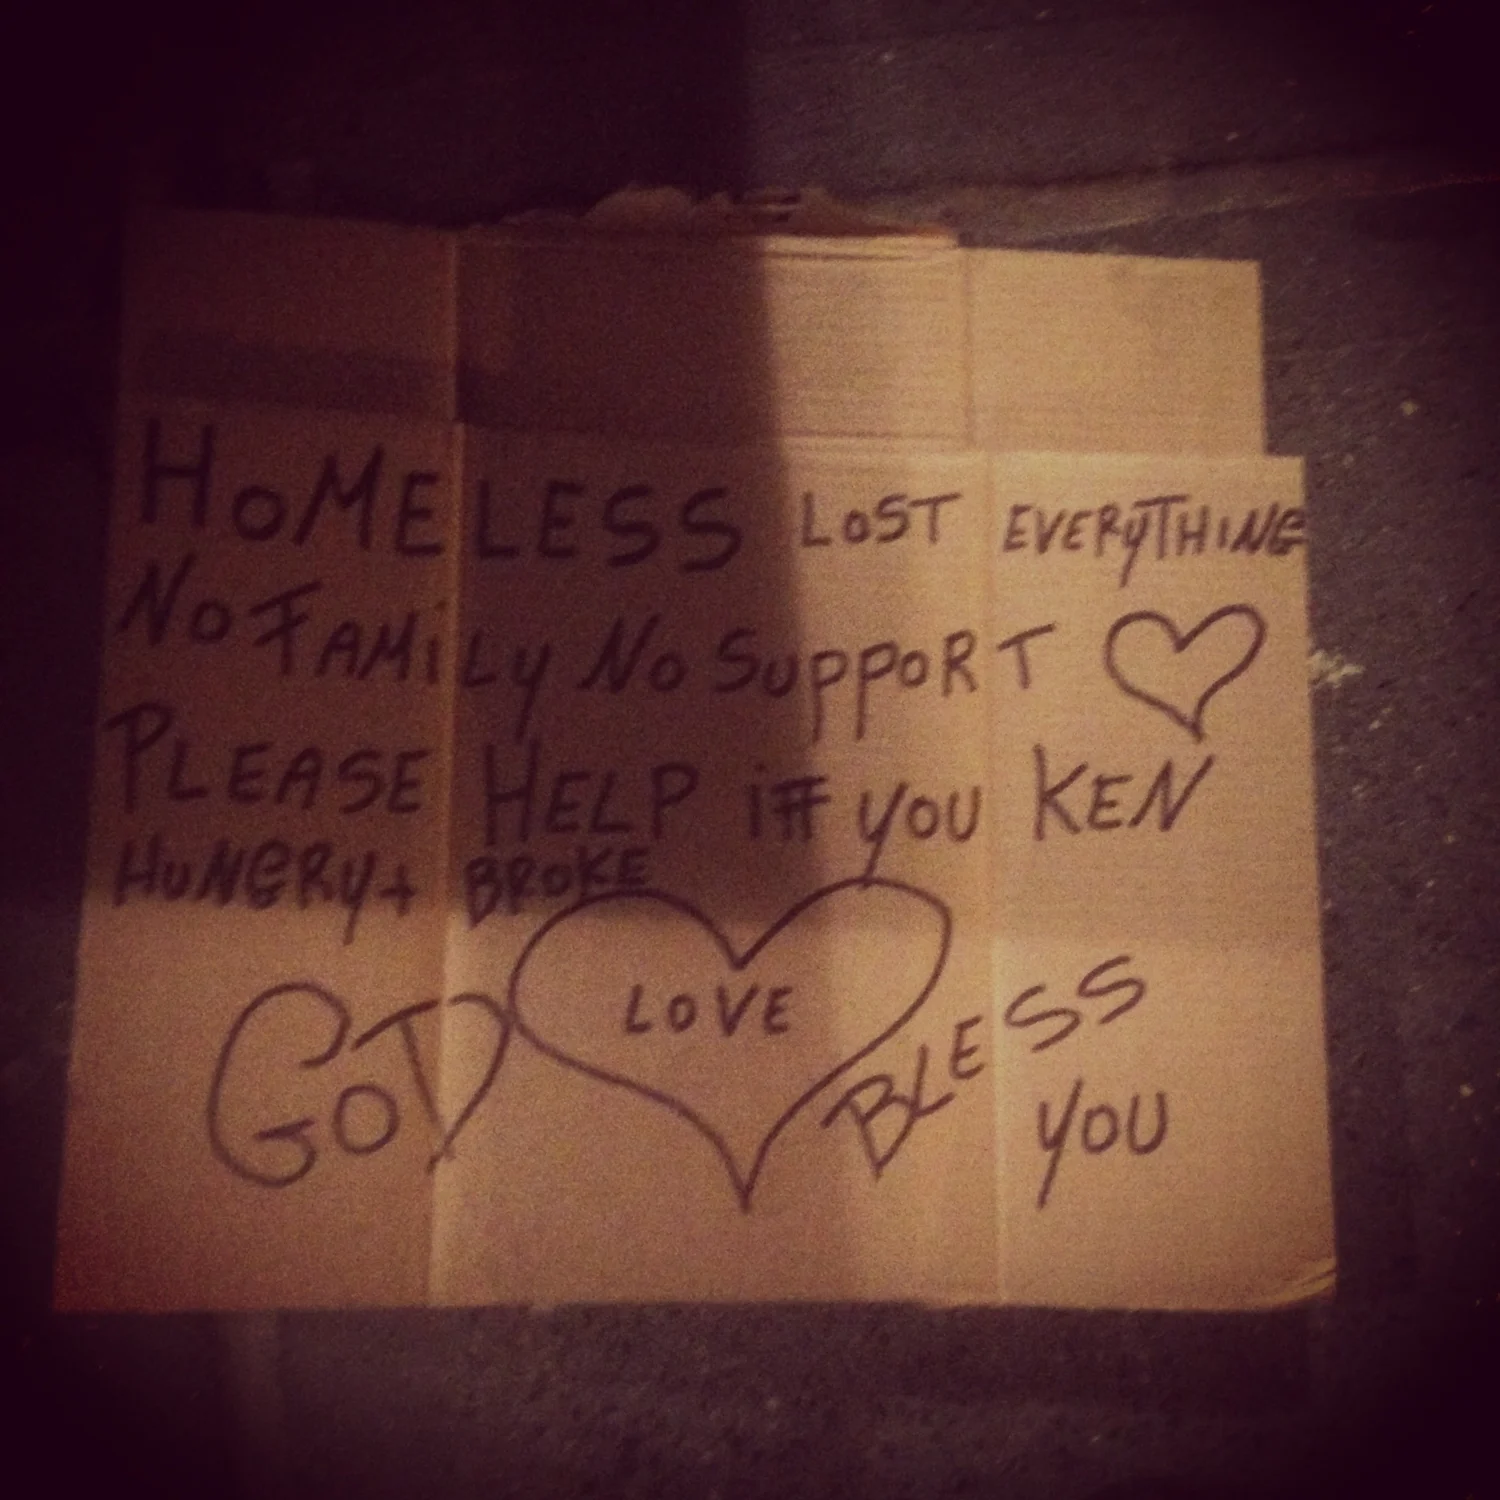 HoMELESS LoST EVERYTHING
No FAMiLy No SuppoRT
PLEASE HELP iF you KEN
HuNGRy + BROKE
LOVE
GOD BLESS
you